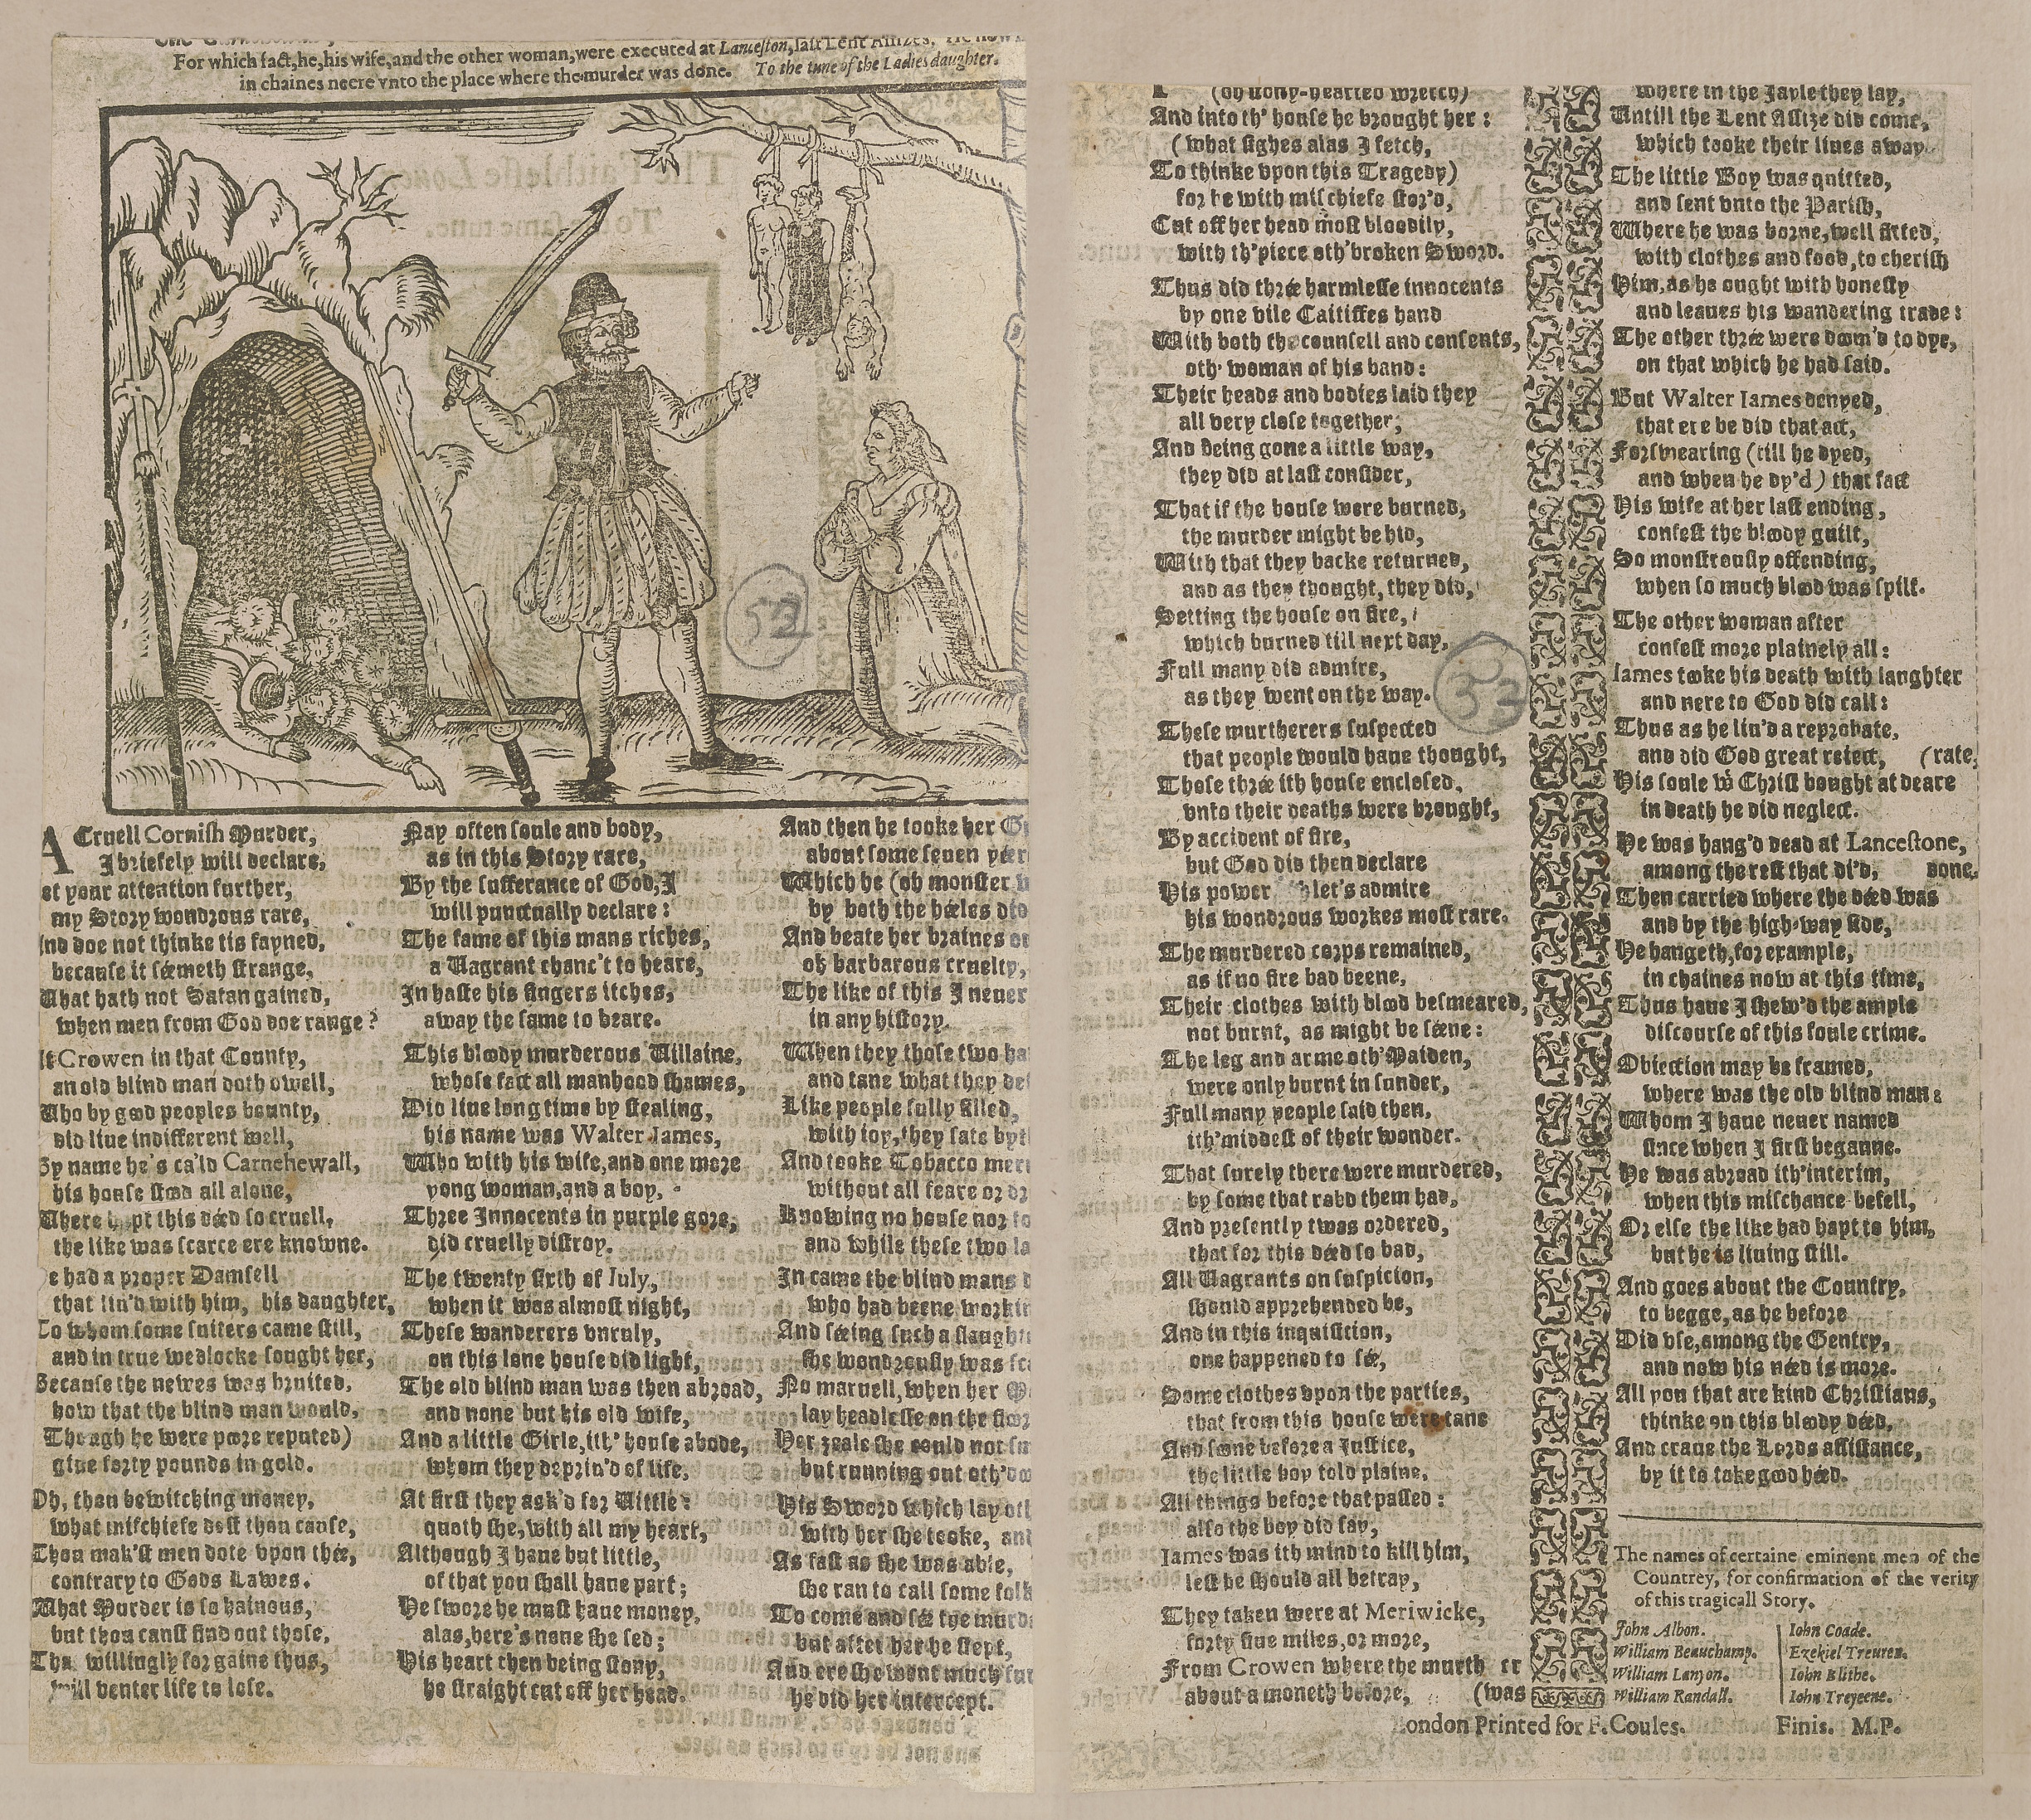 For which fact, he, his wife, and the other woman, were executed at Lanceston, last Lent Assizes. He now
in chaines neere vnto the place where the murder was done. To the tune of the Ladies daughter.
52
A Cruell Cornish Murder,
I briefely will declare,
et your attention further,
my Story wondrous rare,
And doe not thinke tis fayned,
because it séemeth strange,
What hath not Satan gained,
when men from God doe range?
At Crowen in that County,
an old blind man doth dwell,
Who by good peoples bounty,
did liue indifferent well,
By name he's ca'ld Carnehewall,
his house stood all alone,
Where pt this déed so cruell,
the like was scarce ere knowne.
e had a proper Damsell
that liu'd with him, his daughter,
To whom some suiters came still,
and in true wedlocke sought her,
Because the newes was bruited,
how that the blind man would,
Though he were poore reputed)
giue forty pounds in gold.
Oh, thou bewitching money,
what mischiefe dost thou cause,
Thou mak'st men dote vpon thée,
contrary to Gods Lawes.
What Murder is so hainous,
but thou canst find out those,
Tha willingly for gaine thus,
will venter life to lose.
Nay often soule and body,
as in this Story rare,
By the sufferance of God, I
will punctually declare:
The fame of this mans riches,
a Vagrant chanc't to heare,
In haste his fingers itches,
away the same to beare.
This bloody murderous Villaine,
whose fact all manhood shames,
Did liue long time by stealing,
his name was Walter James,
Who with his wife, and one more
yong woman, and a boy,
Three Innocents in purple gore,
did cruelly distroy.
The twenty sixth of July,
when it was almost night,
These wanderers vnruly,
on this lone house did light,
The old blind man was then abroad,
and none but his old wife,
And a little Girle, ith' house abode,
whom they depriu'd of life.
At first they ask'd for Vittle:
quoth she, with all my heart,
Although I haue but little,
of that you shall haue part;
He swore he must haue money,
alas, here's none she sed;
His heart then being stony,
he straight cut off her head.
And then he tooke her G
about some seuen yéer
Which he (oh monster
by both the héeles did
And beate her braines o
oh barbarous cruelty,
The like of this I neuer
in any history.
When they those two ha
and tane what they de
Like people fully filled,
with ioy, they sate by t
And tooke Tobacco mer
without all feare or d
Knowing no house nor to
and while these two la
In came the blind mans d
who had beene workin
And séeing such a slaught
she wondrously was sc
No maruell, when her M
lay headlesse on the floor
Her zeale she could not sm
but running out oth' doo
His Sword which lay oth
with her she tooke, and
As fast as she was able,
she ran to call some folk
To come and sée the murd
but after her he stept,
And ere she went much fur
he did her intercept.
(oh stony-hearted wretch)
And into th' house he brought her:
(what sighes alas I fetch,
To thinke vpon this Tragedy)
for he with mischiefe stor'd,
Cut off her head most bloodily,
with th'piece oth' broken Sword.
Thus did thrée harmlesse innocents
by one vile Caitiffes hand
With both the counsell and consents,
oth' woman of his band:
Their heads and bodies laid they
all very close together;
And being gone a little way,
they did at last consider,
That if the house were burned,
the murder might be hid,
With that they backe returned,
and as they thought, they did,
Setting the house on fire,
which burned till next day,
Full many did admire,
as they went on the way.
53
These murtherers suspected
that people would haue thought,
Those thrée ith house enclosed,
vnto their deaths were brought,
By accident of fire,
but God did then declare
His power let's admire
his wondrous workes most rare.
The murdered corps remained,
as if no fire had beene,
Their clothes with blood besmeared,
not burnt, as might be séene:
The leg and arme oth' Maiden,
were only burnt in sunder,
Full many people said then,
ith' middest of their wonder.
That surely there were murdered,
by some that robd them had,
And presently twas ordered,
that for this déed so bad,
All Vagrants on suspicion,
should apprehended be,
And in this inquisition,
one happened to sée,
Some clothes vpon the parties,
that from this house were tane
And soone before a Justice,
the little boy told plaine,
All things before that passed:
also the boy did say,
Iames was ith mind to kill him,
lest he should all betray,
They taken were at Meriwicke,
forty fiue miles, or more,
From Crowen where the murth er
about a moneth before, (was
where in the Jayle they lay,
Untill the Lent Assize did come,
which tooke their liues away.
The little Boy was quitted,
and sent vnto the Parish,
Where he was borne, well fitted,
with clothes and food, to cherish
Him, as he ought with honesty
and leaues his wandering trade:
The other thrée were doom'd to dye,
on that which he had said.
But Walter Iames denyed,
that ere he did that act,
Forswearing (till he dyed,
and when he dy'd) that fact
His wife at her last ending,
confest the bloody guilt,
So monstrously offending,
when so much blood was spilt.
The other woman after
confest more plainely all:
Iames tooke his death with laughter
and nere to God did call:
Thus as he liu'd a reprobate,
and did God great reiect, (rate,
His soule wc Christ bought at deare
in death he did neglect.
He was hang'd dead at Lancestone,
among the rest that di'd, done,
Then carried where the déed was
and by the high-way side,
He hangeth, for example,
in chaines now at this time,
Thus haue I shew'd the ample
discourse of this foule crime.
Obiection may be framed,
where was the old blind man:
Whom I haue neuer named
since when I first beganne.
He was abroad ith' interim,
when this mischance befell,
Or else the like had hapt to him,
but he is liuing still.
And goes about the Country,
to begge, as he before
Did vse, among the Gentry,
and now his néed is more.
All you that are kind Christians,
thinke on this bloody déed,
And craue the Lords assistance,
by it to take good héed.
The names of certaine eminent men of the
Countrey, for confirmation of the verity
of this tragicall Story.
John Albon.
William Beauchamp.
William Lanyon.
William Randall.
Iohn Coade.
Ezekiel Treuren.
Iohn Blithe.
Iohn Treyeene.
London Printed for F. Coules. Finis. M.P.